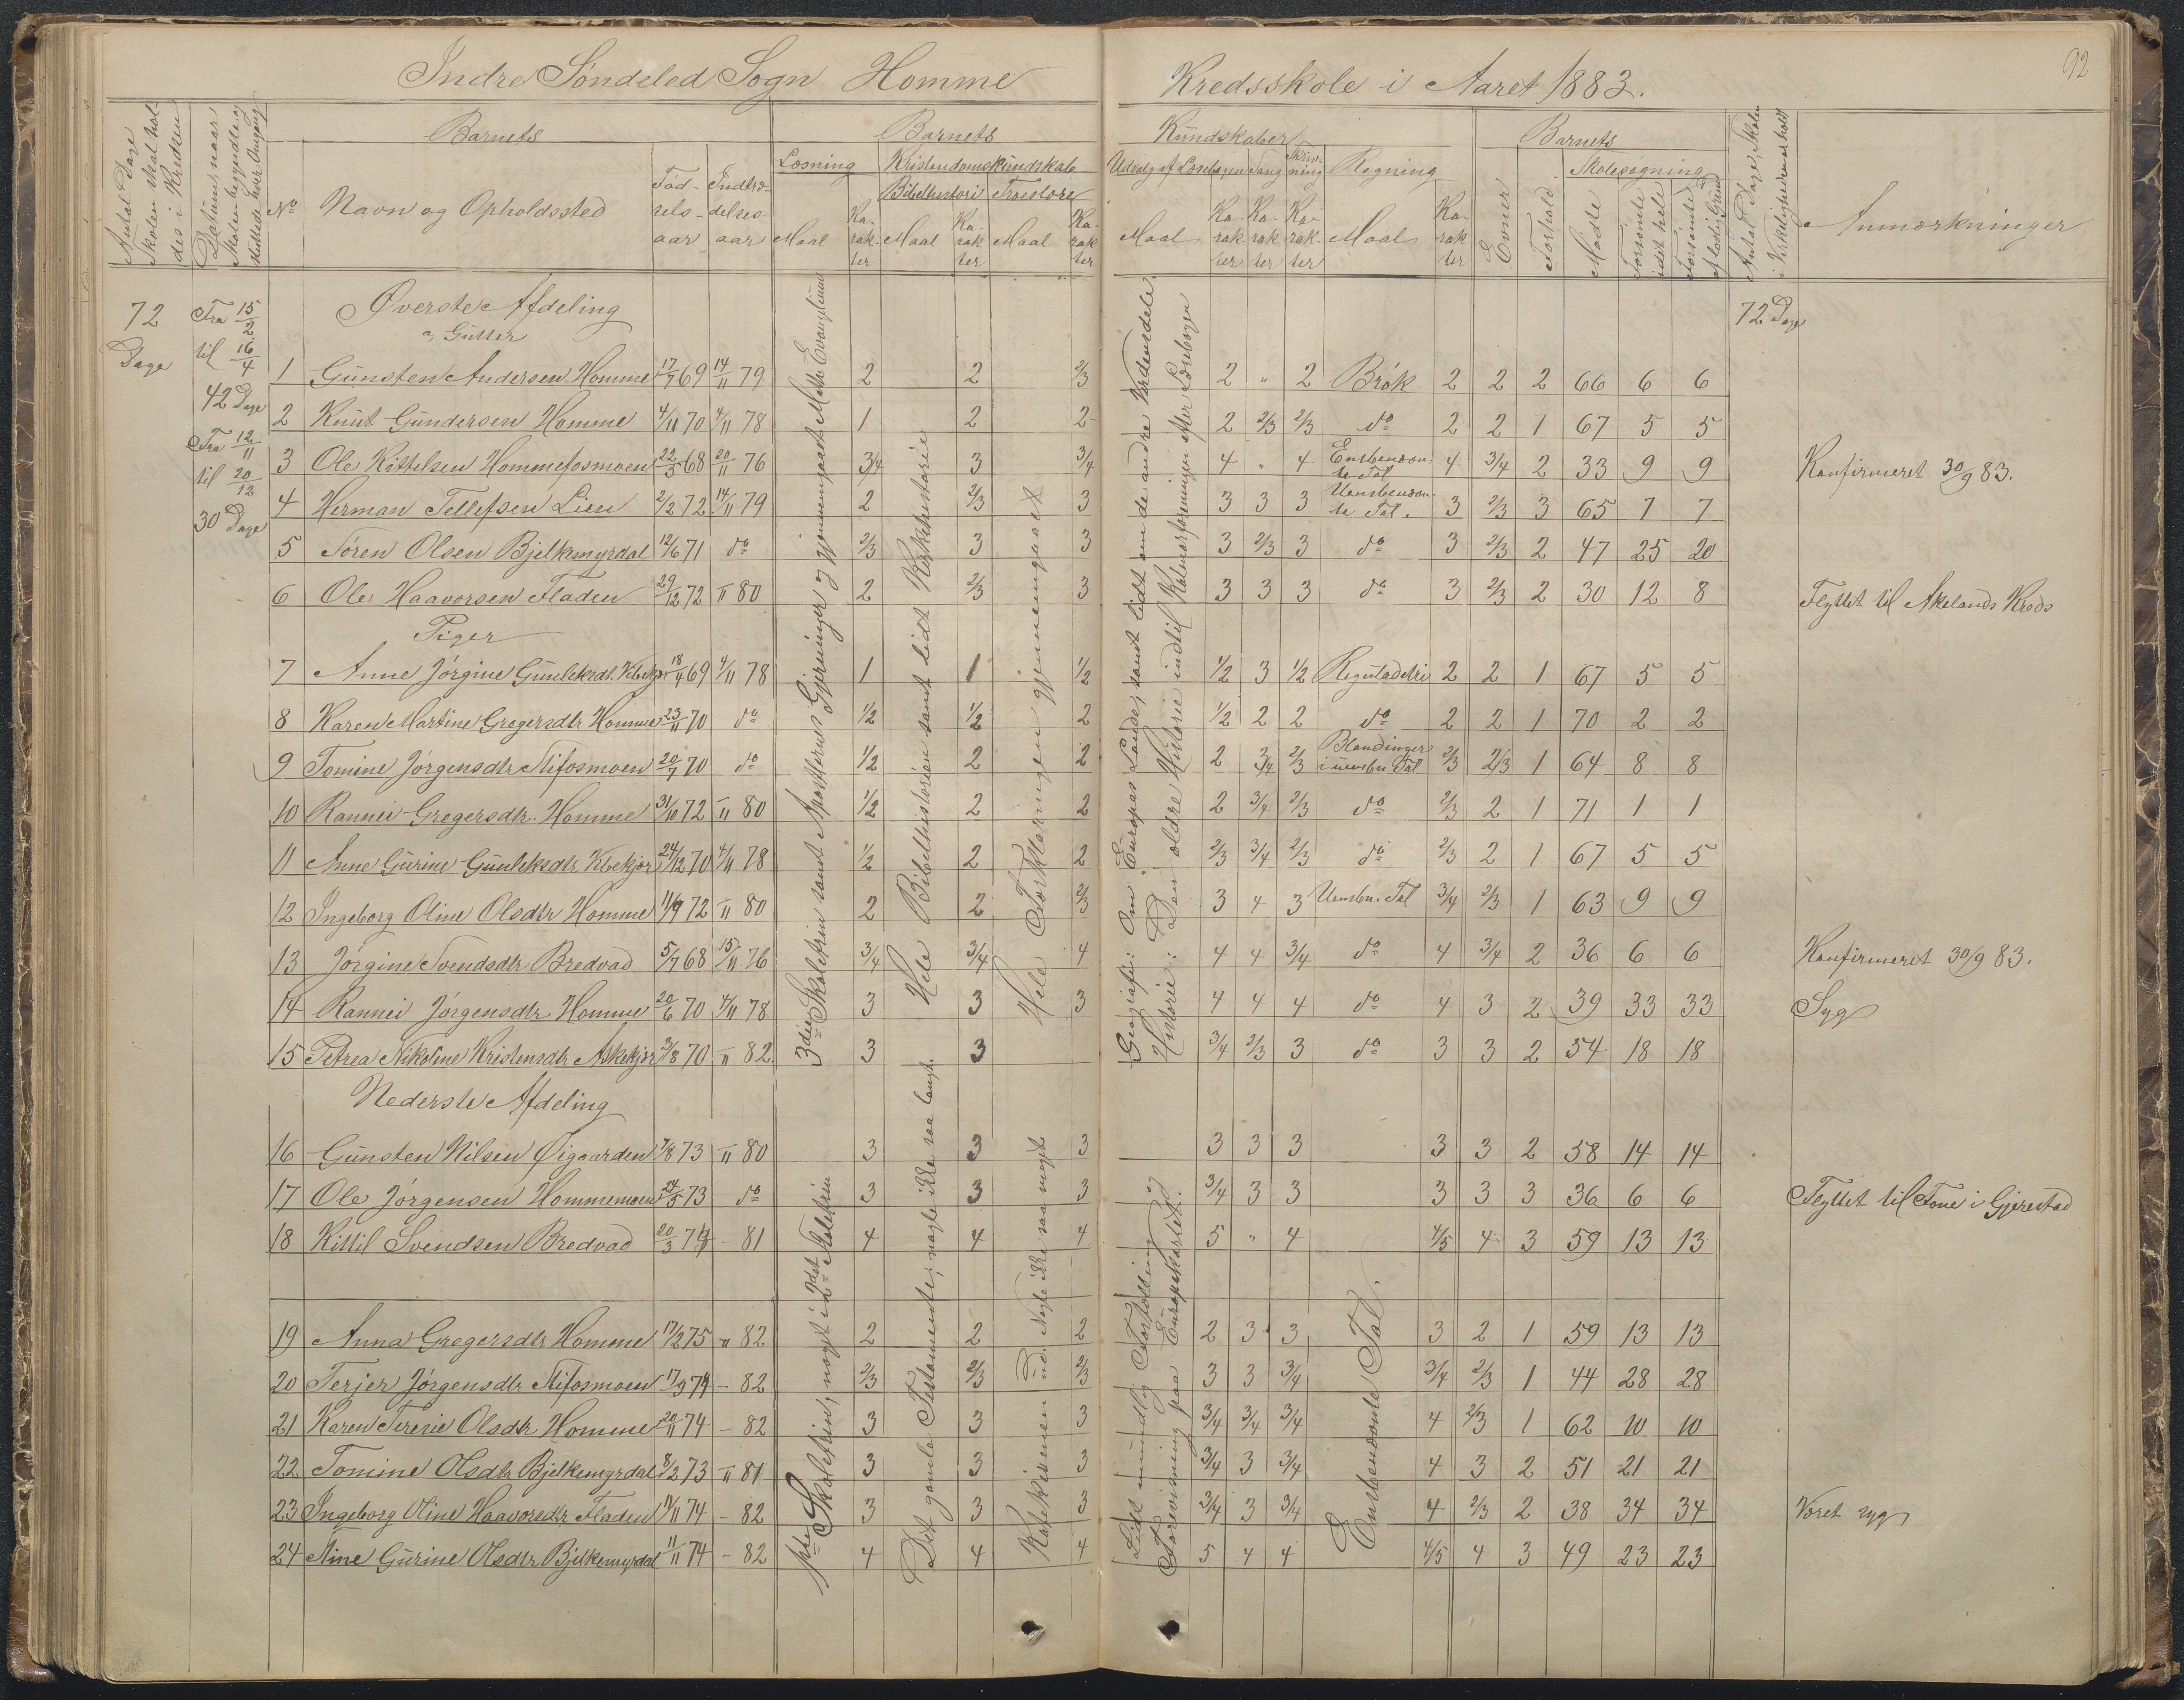 92
Indre Søndeled Sogn Homme Kredsskole i Aaret 1883.
Antal Dage Skolen skal holdes i Kredsen
Datum, naar Skolen begyndte og sluttede hver Omgang
No
Barnets
Navn og Opholdssted
Fødselsaar
Indtrædelsesaar
Barnets Kundskaber
Læsning
Maal
Karakter
Kristendomskundskab
Bibelhistorie
Maal
Karakter
Troeslære
Maal
Karakter
Udvalg af Læsebogen
Maal
Karakter
Sang
Karakter
Skrivning
Karakter
Regning
Maal
Karakter
Barnets
Evner
Forhold
Skolesøgning
Mødte
Forsømte i det hele
Forsømte af lovlig Grund
Antal Dage, Skolen i Virkeligheden er holdt
Anmærkninger
72 Dage
Fra 15/2 til 16/4 42 Dage
Fra 12/11 til 20/12 30 Dage
72 Dage
Øverste Afdeling
a, Gutter
1 Gunsten Andersen Homme 17/7 69 14/11 79 2 2 2/3 2 " 2 Brøk 2 2 2 66 6 6
2 Knut Gundersen Homme 4/11 70 4/11 78 1 2 2 2 2/3 2/3 do 2 2 1 67 5 5
3 Ole Kittelsen Hommefosmoen 22/5 68 20/11 76 3/4 3 3/4 4 " 4 Ensbenævnte Tal 4 3/4 2 33 9 9 Konfirmeret 30/9 83.
4 Herman Tellefsen Lien 2/2 72 14/11 79 2 2/3 3 3 3 3 Uensbenævnte Tal. 3 2/3 3 65 7 7
5 Søren Olsen Bjelkemyrdal 12/6 71 do 2/3 3 3 3 2/3 3 do 3 2/3 2 47 25 20
6 Ole Haavorsen Fladen 29/12 72 " 80 2 2/3 3 3 3 3 do 3 2/3 2 30 12 8 Flyttet til Akelands Kreds
Piger
7 Anne Jørgine Gunleksdt. 18/4 69 4/11 78 1 1 1/2 1/2 3 1/2 Reguladetri 2 2 1 67 5 5
8 Karen Martine Gregersdtr Homme 23/11 70 do 1/2 1/2 2 1/2 2 2 do 2 2 1 70 2 2
9 Tomine Jørgensdtr Stifosmoen 20/7 70 do 1/2 2 2 2 3/4 2/3 Blandinger i uensbn. Tal 2/3 2/3 1 64 8 8
10 Rannei Gregersdtr. Homme 31/10 72 " 80 1/2 2 2 2 3/4 2/3 do 2/3 2 1 71 1 1
11 Anne Gurine Gunleksdtr 24/12 70 4/11 78 1/2 2 2 2/3 3/4 2/3 do 2/3 2 1 67 5 5
12 Ingeborg Oline Olsdtr Homme 11/9 72 " 80 2 2 2/3 3 4 3 Uensbn. Tal 3/4 2/3 1 63 9 9
13 Jørgine Svendsdtr Bredvad 5/7 68 15/11 76 3/4 3/4 4 4 4 3/4 do 4 3/4 2 36 6 6 Konfirmeret 30/9 83.
14 Rannei Jørgensdtr Homme 20/6 70 4/11 78 3 3 3 4 4 4 do 4 3 2 39 33 33 Syg
15 Petrea Nikoline Kristensdtr Askekjær 3/8 70 " 82 3 3 3/4 2/3 3 do 3 3 2 54 18 18
3die Skoletrin samt Apostlernes Gjerninger og gjennemgaaet Math. Evangelium
Hele Bibelhistorien samt lidt Kirkehistorie
Hele Forklaringen gjennemgaaet
Geografi: Om Europas Lande, samt lidt om de andre Verdensdele.
Historie: Den ældre Historie indtil Kalmarforeningen efter Læsebogen
Nederste Afdeling
16 Gunsten Nilsen Øigaarden 7/8 73 " 80 3 3 3 3 3 3 3 3 2 58 14 14
17 Ole Jørgensen Hommemoen 24/5 73 do 3 3 3 3/4 3 3 3 3 3 36 6 6 Flyttet til Fone i Gjerestad
18 Kittil Svendsen Bredvad 20/3 74 - 81 4 4 4 5 " 4 4/5 4 3 59 13 13
19 Anna Gregersdtr Homme 17/2 75 " 82 2 2 2 2 3 3 3 2 1 59 13 13
20 Terjer Jørgensdtr Stifosmoen 17/9 74 - 82 2/3 2/3 2/3 3 3 3/4 3/4 2/3 1 44 28 28
21 Karen Teresie Olsdtr Homme 20/11 74 - 82 3 3 3 3/4 3/4 3/4 4 2/3 1 62 10 10
22 Tomine Olsdtr Bjelkemyrdal 8/2 73 " 81 3 3 3 3/4 3 3/4 4 3 2 51 21 21
23 Ingeborg Oline Haavorsdtr Fladen 11/11 74 - 82 3 3 3 3/4 3 3/4 4 2/3 2 38 34 34 Været syg
24 Stine Gurine Olsdtr Bjelkemyrdal 11/11 74 - 82 4 4 4 5 4 4 4/5 4 3 49 23 23
1ste Skoletrin, nogle i 2det Skoletrin
Det gamle Testamente, nogle ikke saa langt.
Katekismen ud. Nogle ikke saa meget
Lidt mundtlig Fortælling og Forevisning paa Europakartet.
Ensbenævnte Tal.